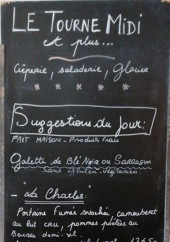 LE TOURNE MIDI
et plus...
Crêperie, saladerie, Glacier
Suggestions du Jour:
FAIT MAISON - Produits Frais
Galette de Blé Noir ou Sarrasin
sans gluten. Végétarien
- de Charles:
Poitrine Fumée snackée, camembert
au lait cru, pommes poêlées au
Beurre demi-sel